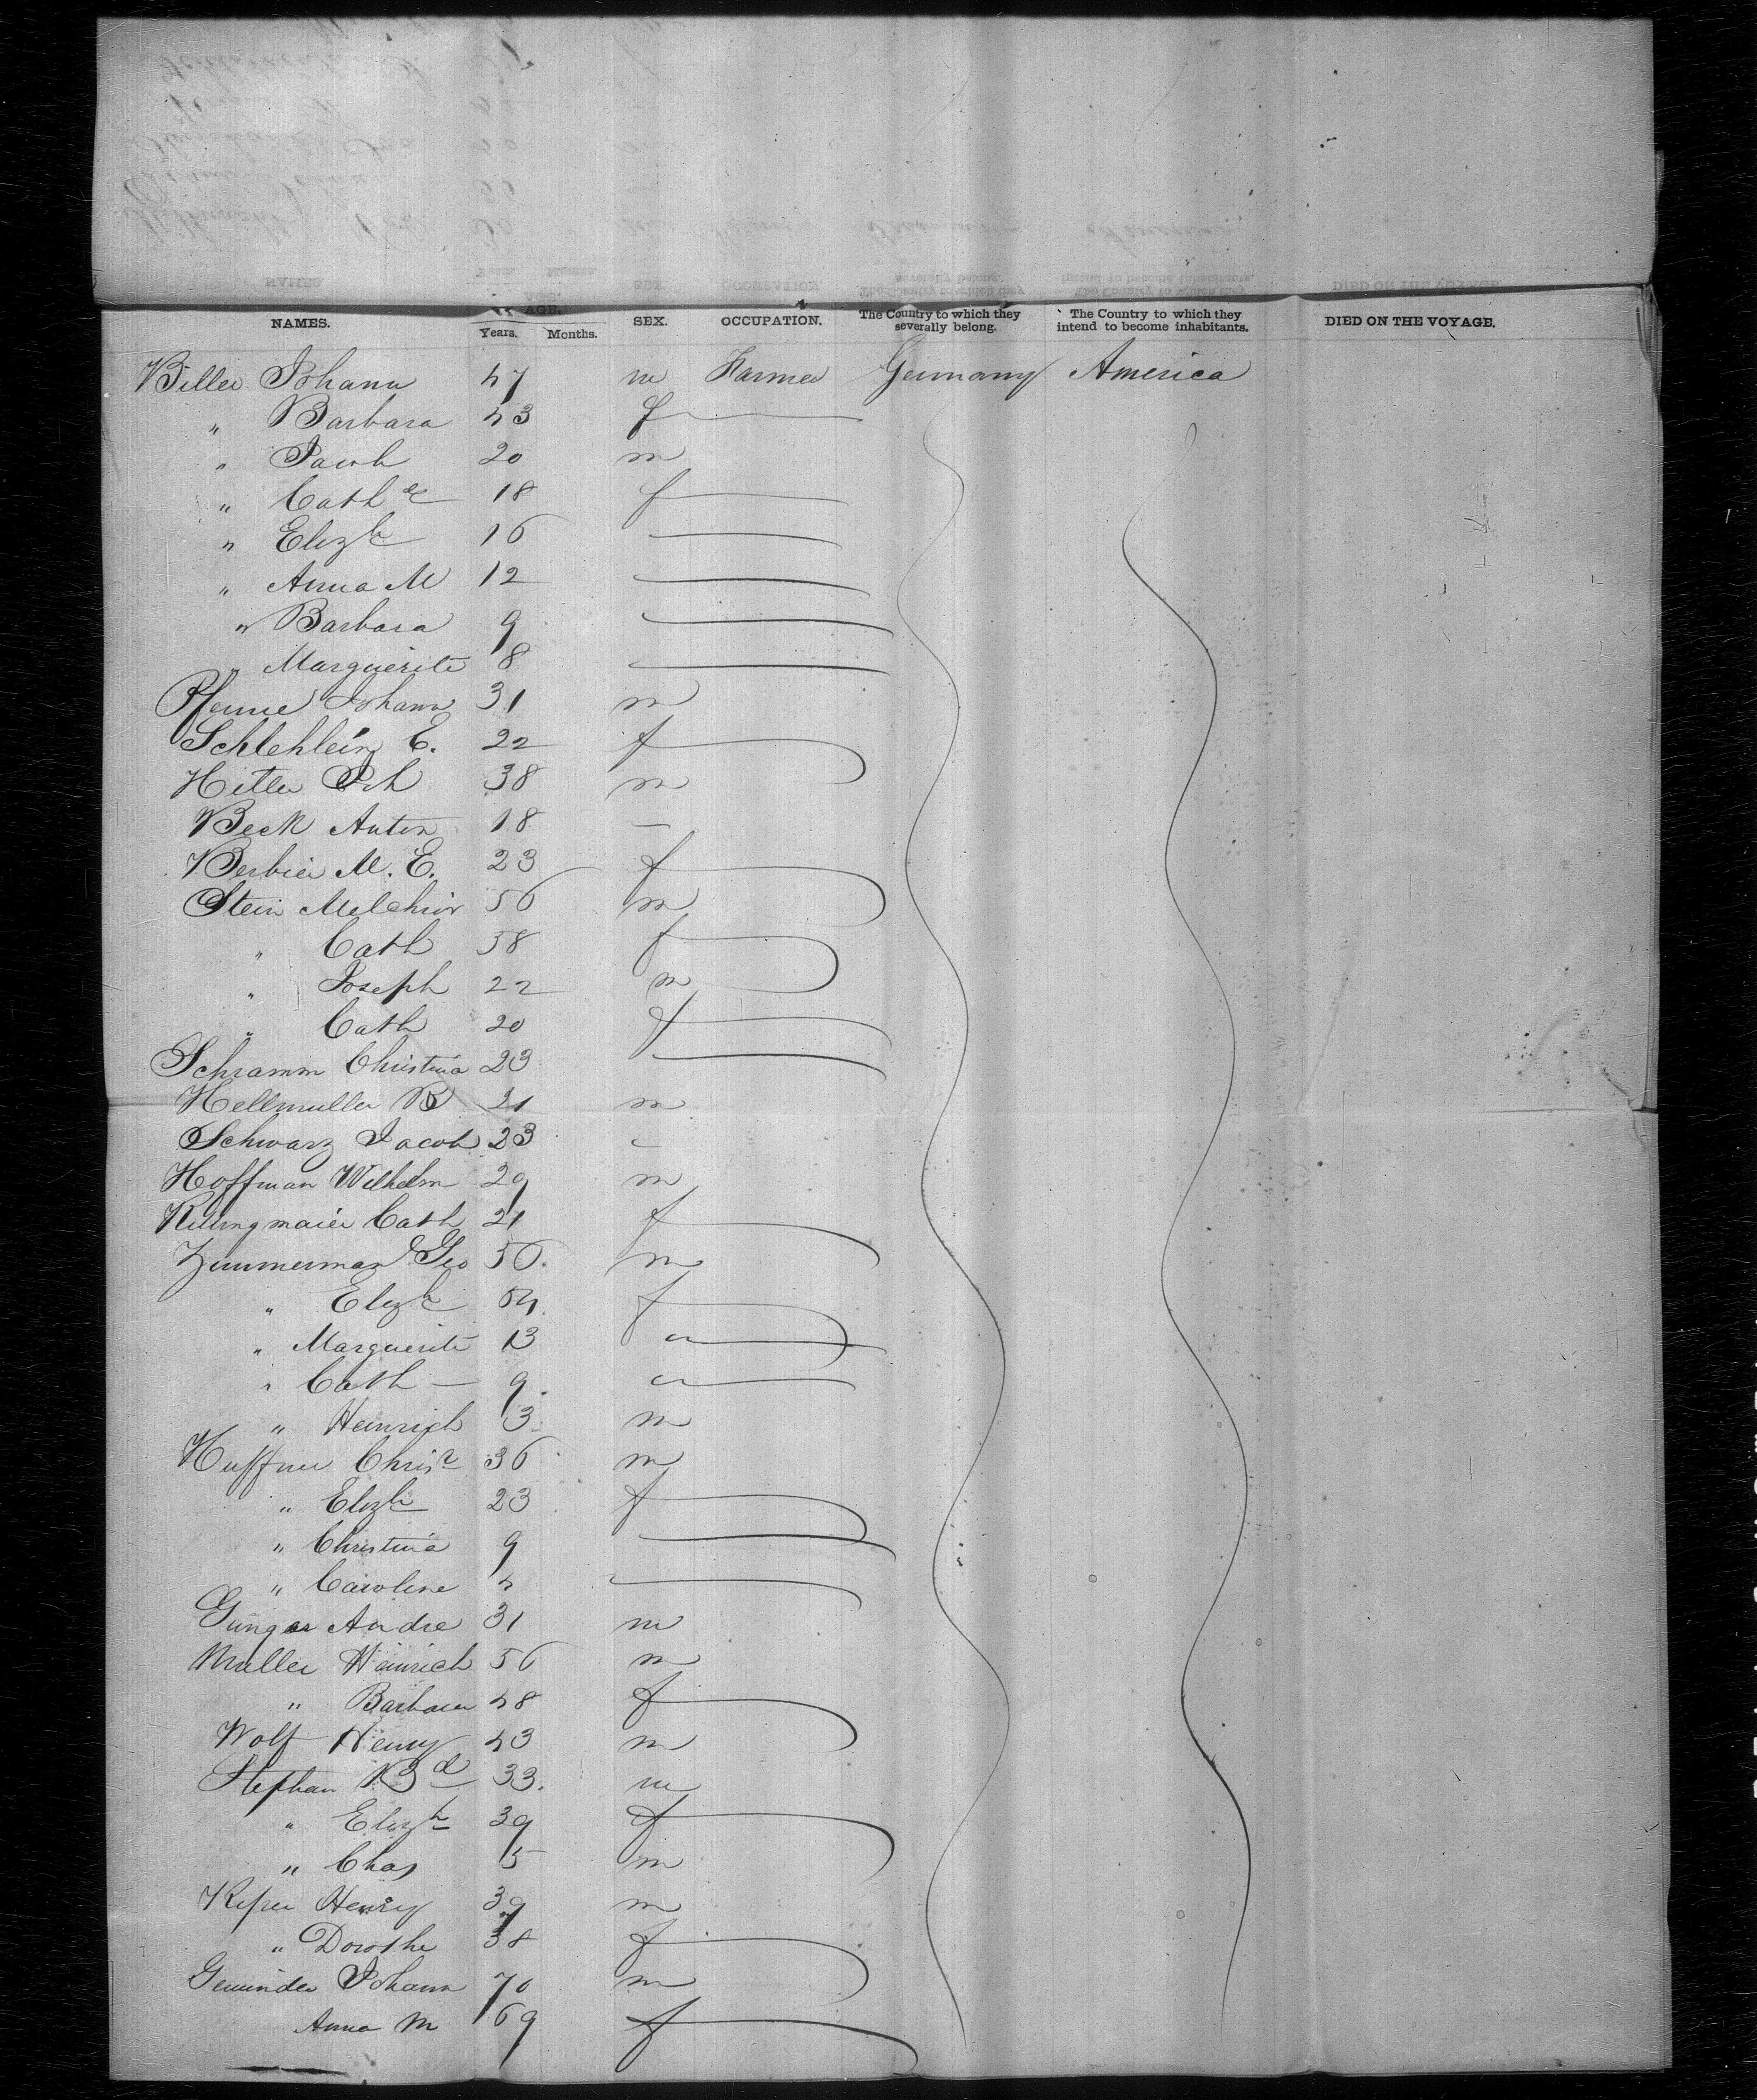 NAMES. AGE. Years. Months. SEX. OCCUPATION. The Country to which they severally belong. The Country to which they intend to become inhabitants. DIED ON THE VOYAGE.
Biller Johann 47 m Farmer Germany America
" Barbara 43 f
" Jacob 20 m
" Cathe 18 f
" Elizh 16
" Anna M 12
" Barbara 9
" Marguerite 8
Johann 31 m
Schlehlein E. 22 f
38 m
Beck Anton 18
M. E. 23 f
Stein Melchior 56 m
" Cath 58 f
" Joseph 22 m
" Cath 20 f
Schramm Christina 23
Hellmuller B 21 m
Schwarz Jacob 23
Hoffman Wilhelm 29 m
Cath 21 f
Zimmerman Geo 56. m
" Elizh 54. f
" Marguerite 13 "
" Cath — 9. "
" Heinrich 3 m
Huffner Chrisn 36 m
" Elizh 23 f
" Christina 9
" Caroline 4
Andre 31 m
Muller Heinrich 56 m
" Barbara 48 f
Wolf Henry 43 m
Stephan Bd 33. m
" Elizh 39 f
" Chas 5 m
Henry 39 m
" Dorothe 38 f
Geminder Johann 70 m
Anna M 69 f